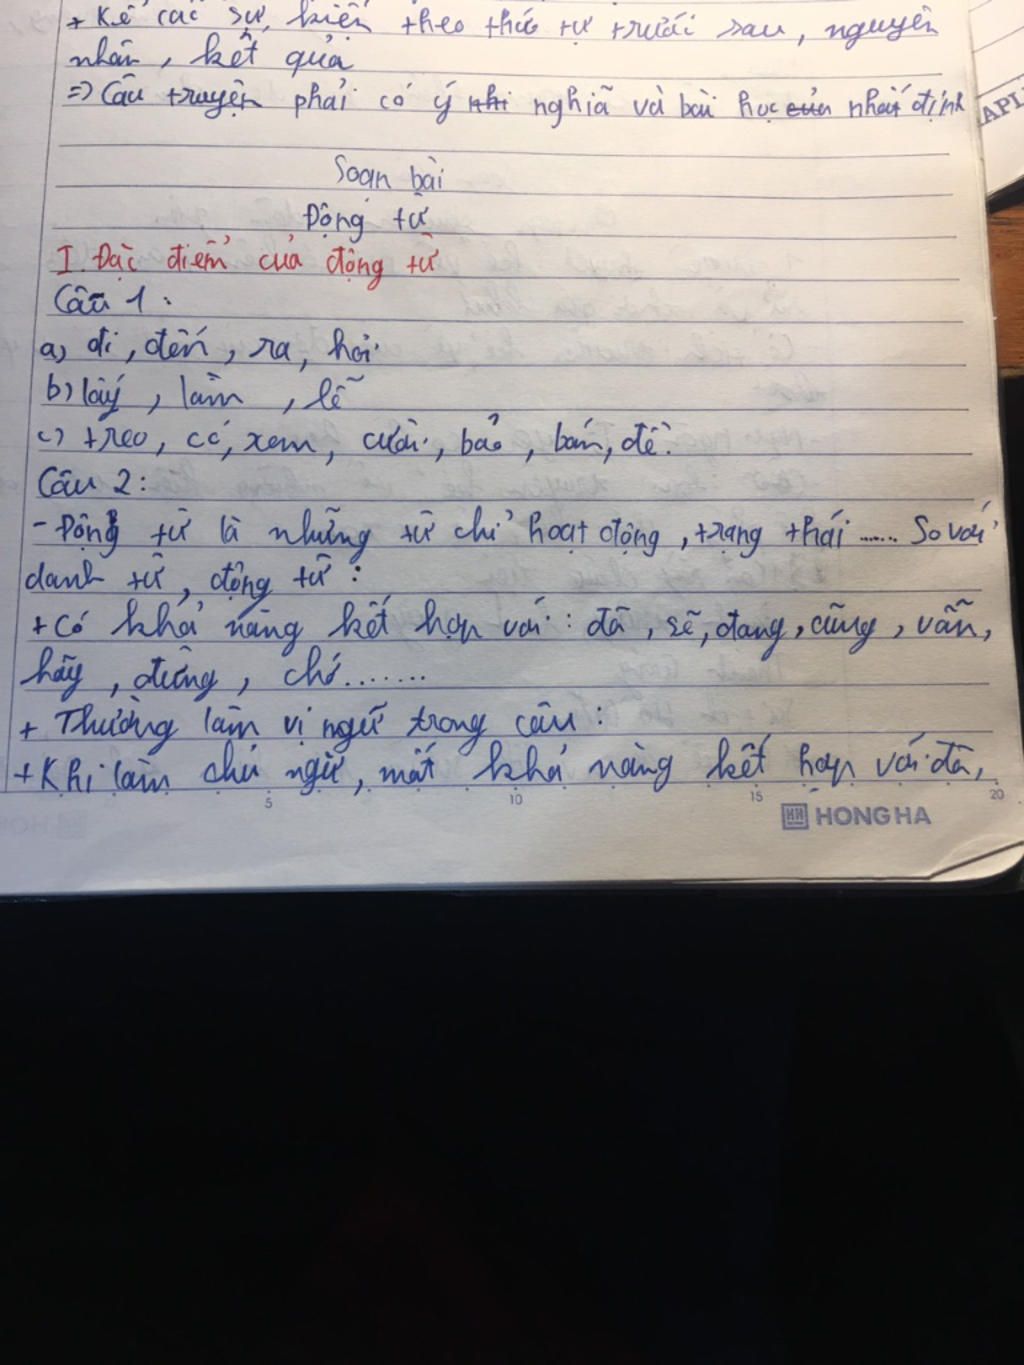 + Kể các sự kiện theo thứ tự trước sau, nguyên
nhân, kết quả
=> Câu truyện phải có ý nghiã và bài học nhất định
APL
Soạn bài
Động từ
I. Đặc điểm của động từ
Câu 1:
a) đi, đến, ra, hỏi
b) lấy, làm, lễ
c) treo, có, xem, cười, bảo, bán, để.
Câu 2:
- Động từ là những từ chỉ hoạt động, trạng thái ...... So với
danh từ, động từ :
+ Có khả năng kết hợp với : đã, sẽ, đang, cũng, vẫn,
hãy, đừng, chớ.......
+ Thường làm vị ngữ trong câu :
+ Khi làm chủ ngữ, mất khả năng kết hợp với đã,
5 10 15 20
HH HONG HA